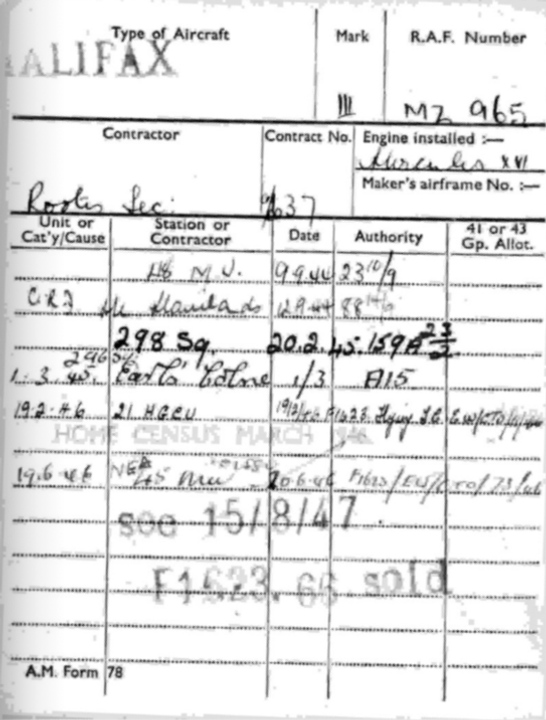 Type of Aircraft Mark R.A.F. Number
HALIFAX III MZ 965
Contractor Contract No. Engine installed :—
Hercules XVI
Maker's airframe No. :—
Rootes Sec: 637
Unit or Cat'y/Cause Station or Contractor Date Authority 41 or 43 Gp. Allot.
48 M.U. 9.9.44 23 10/9
12.9.44 88
298 Sq. 20.2.45. 159A 23/2
296 Sq
1.3.45. Earls Colne 1/3 A15
19.2.46 21 HGCU F1623
HOME CENSUS MARCH 946
19.6.46 NEA 45 MU 20.6.46
soc 15/8/47.
F1623.66 sold
A.M. Form 78